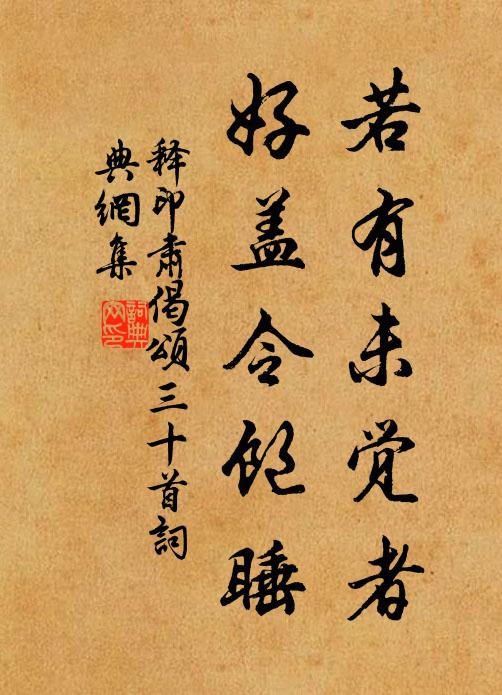 若有未觉者
好盖令饱睡
释印肃偈颂三十首詞
典網集
詞典
网印